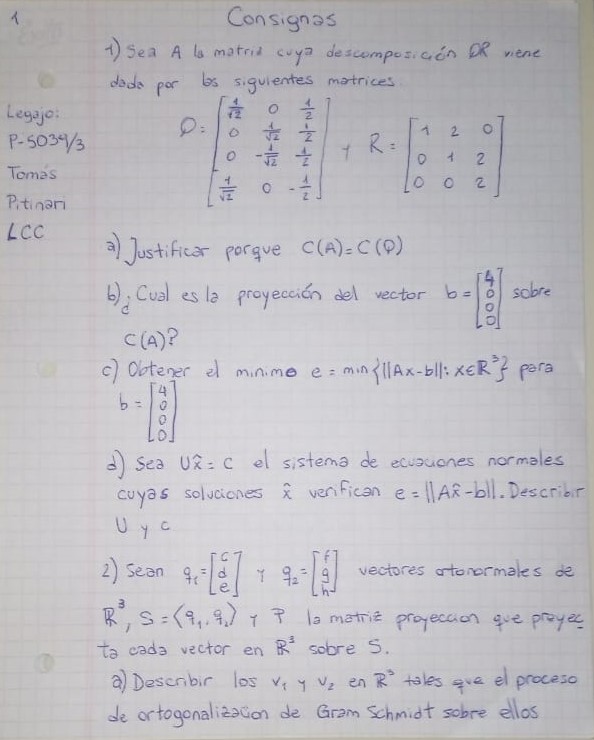 1
Consignas
1) Sea A la matriz cuya descomposición QR viene
dada por los siguientes matrices.
Legajo:
P-5039/3
Tomás
Pitinari
LCC
Q = [1/√2 0 1/2; 0 1/√2 1/2; 0 -1/√2 1/2; 1/√2 0 -1/2] y R = [1 2 0; 0 1 2; 0 0 2]
a) Justificar porque C(A)=C(Q)
b) ¿Cual es la proyección del vector b = [4; 0; 0; 0] sobre
C(A)?
c) Obtener el minimo e = min{||Ax-b||: x∈R³} para
b = [4; 0; 0; 0]
d) Sea Ux̂ = c el sistema de ecuaciones normales
cuyas soluciones x̂ verifican e = ||Ax̂-b||. Describir
U y c
2) Sean q₁=[c; d; e] y q₂=[f; g; h] vectores ortonormales de
R³, S = ⟨q₁,q₂⟩ y P la matriz proyeccion que proyec
ta cada vector en R³ sobre S.
a) Describir los v₁ y v₂ en R³ tales que el proceso
de ortogonalización de Gram Schmidt sobre ellos